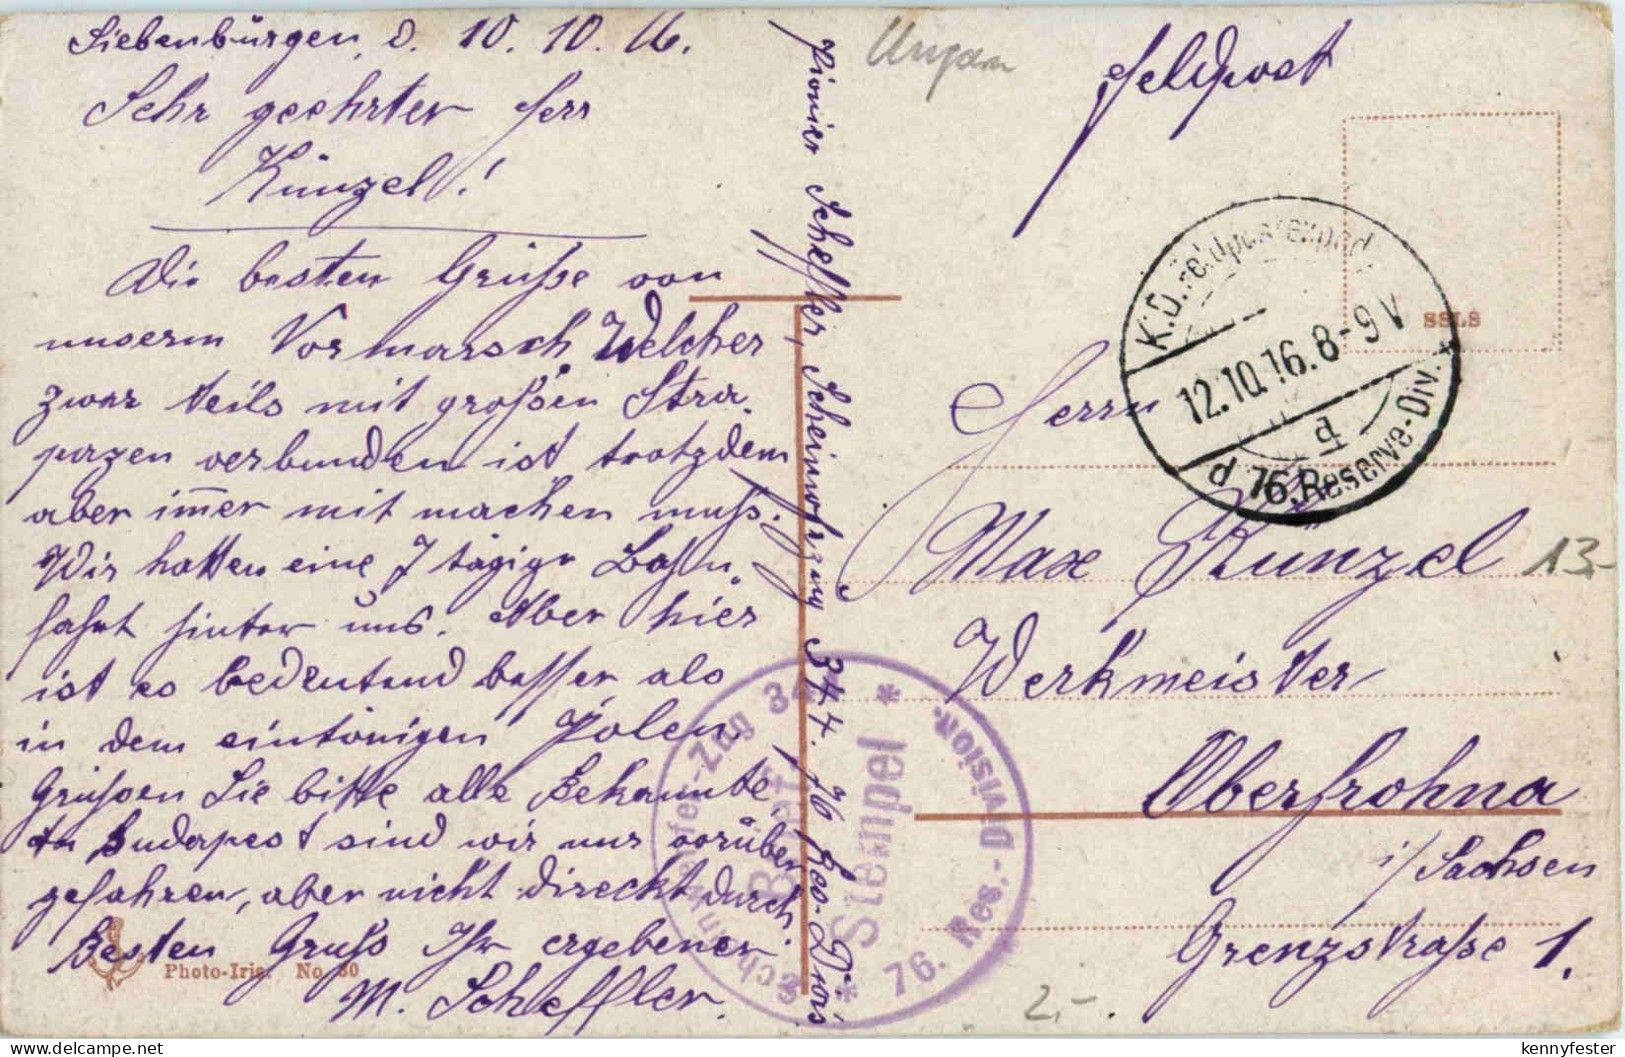 Siebenbürgen, d. 10. 10. 16.
Sehr geehrter Herr
Künzel!
Die besten Grüße von
unserm Vormarsch Welcher
zwar teils mit großen Stra-
pazen verbunden ist, trotzdem
aber immer mit machen muß.
Wir hatten eine 7 tägige Bahn-
fahrt hinter uns. Aber hier
ist es bedeutend besser, als
in dem eintönigen Polen
Grüßen Sie bitte alle Bekannte
In Budapest sind wir nur vorüber
gefahren, aber nicht direckt durch.
Besten Gruß Ihr ergebener
M. Scheffler.
Photo-Iris. No. 30
Pionier Scheffler, Scheinwfrzug 344. 76 Res-Divis
Ungarn
Feldpost
SSLS
K.D. Feldpostexped.
12.10.16. 8-9 V
d
d 76. Reserve-Div. +
Herrn
Max Künzel
13.-
Werkmeister
Oberfrohna
i/Sachsen
Grenzstraße 1.
2.-
Scheinwerfer-Zug 344
Brief
Stempel
* 76. Res.-Division. *
kennyfester
delcampe.net